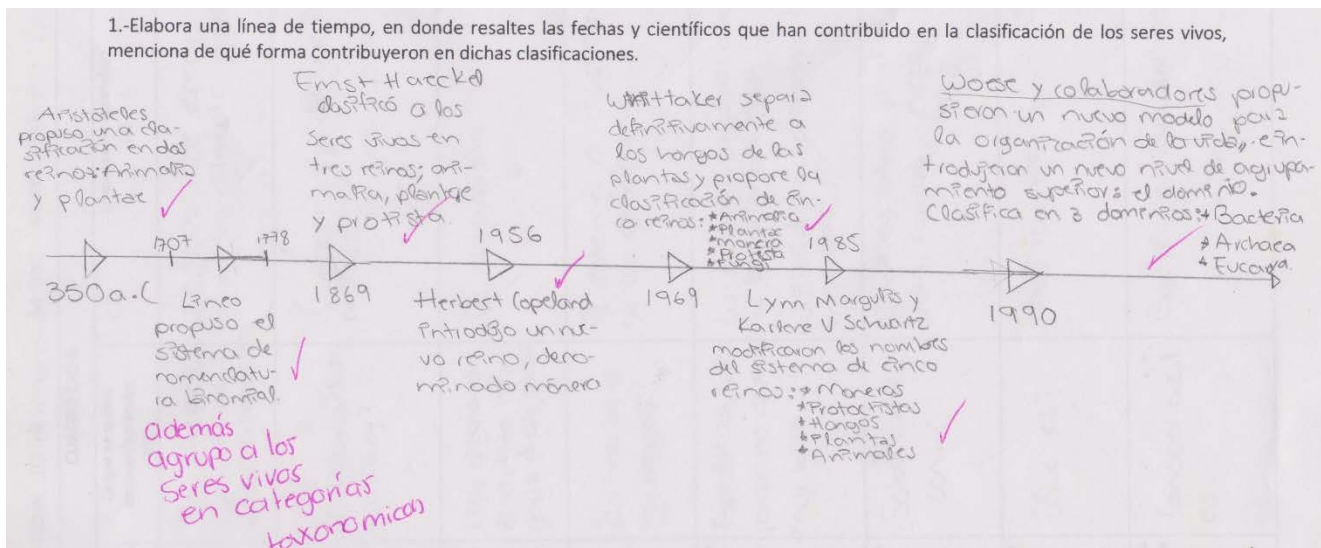 1.-Elabora una línea de tiempo, en donde resaltes las fechas y científicos que han contribuido en la clasificación de los seres vivos,
menciona de qué forma contribuyeron en dichas clasificaciones.
Aristóteles
propuso una cla-
sificación en dos
reinos: Animalia
y plantae
350a.C
1707
1778
Lineo
propuso el
sistema de
nomenclatu-
ra binomial.
además
agrupo a los
seres vivos
en categorías
taxonomicas
Ernst Haeckel
clasificó a los
seres vivos en
tres reinos; ani-
malia, plantae
y protista.
1869
1956
Herbert Copeland
introdujo un nue-
vo reino, deno-
minado mónera
Whittaker separa
definitivamente a
los hongos de las
plantas y propone la
clasificación de cin-
co reinos: *Animalia
*Plantae
*monera
*Protista
*Fungi
1969
1985
Lynn Margulis y
Karlene V Schwartz
modificaron los nombres
del sistema de cinco
reinos: *Moneras
*Protoctistas
*Hongos
*Plantas
*Animales
Woese y colaboradores propu-
sieron un nuevo modelo para
la organización de la vida, e in-
trodujeron un nuevo nivel de agrupa-
miento superior: el dominio.
Clasifica en 3 dominios: *Bacteria
*Archaea
*Eucarya.
1990